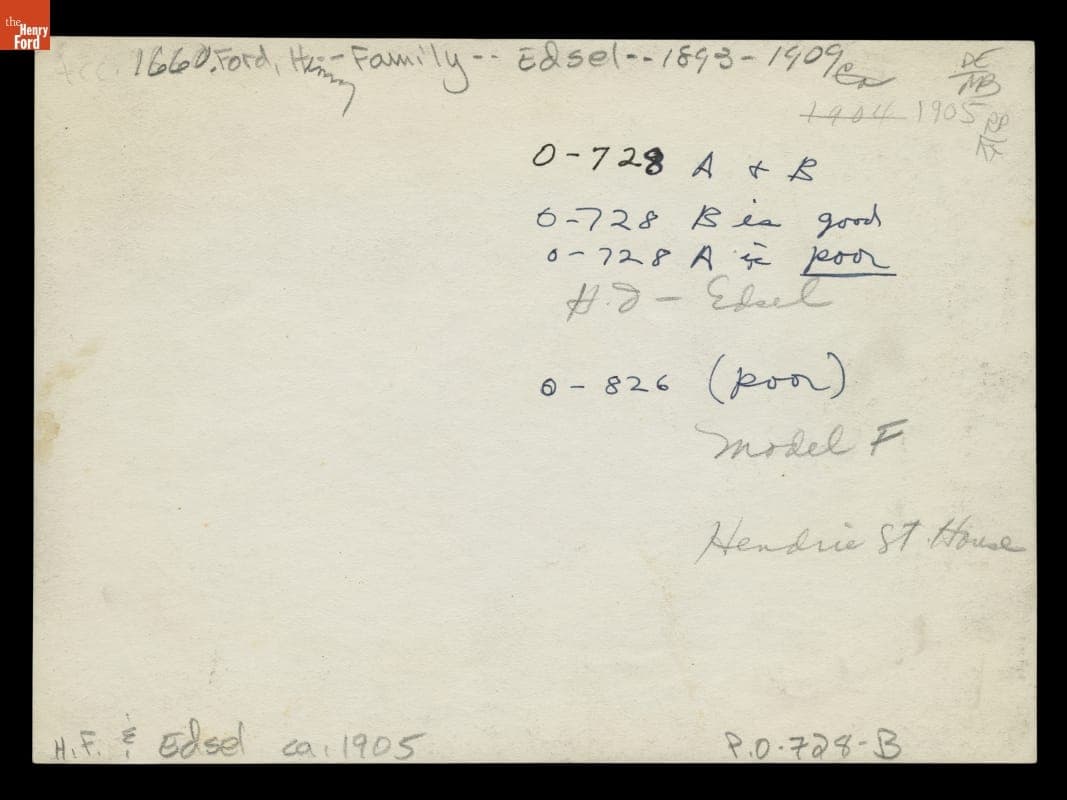 the
Henry
Ford
1660. Ford, Henry -- Family -- Edsel -- 1893 - 1909
DE
MB
1904 1905
O-728 A + B
O-728 B is good
O-728 A is poor
H.F - Edsel
O-826 (poor)
Model F
Hendrie St. House
H.F. & Edsel ca. 1905
P.O.728-B